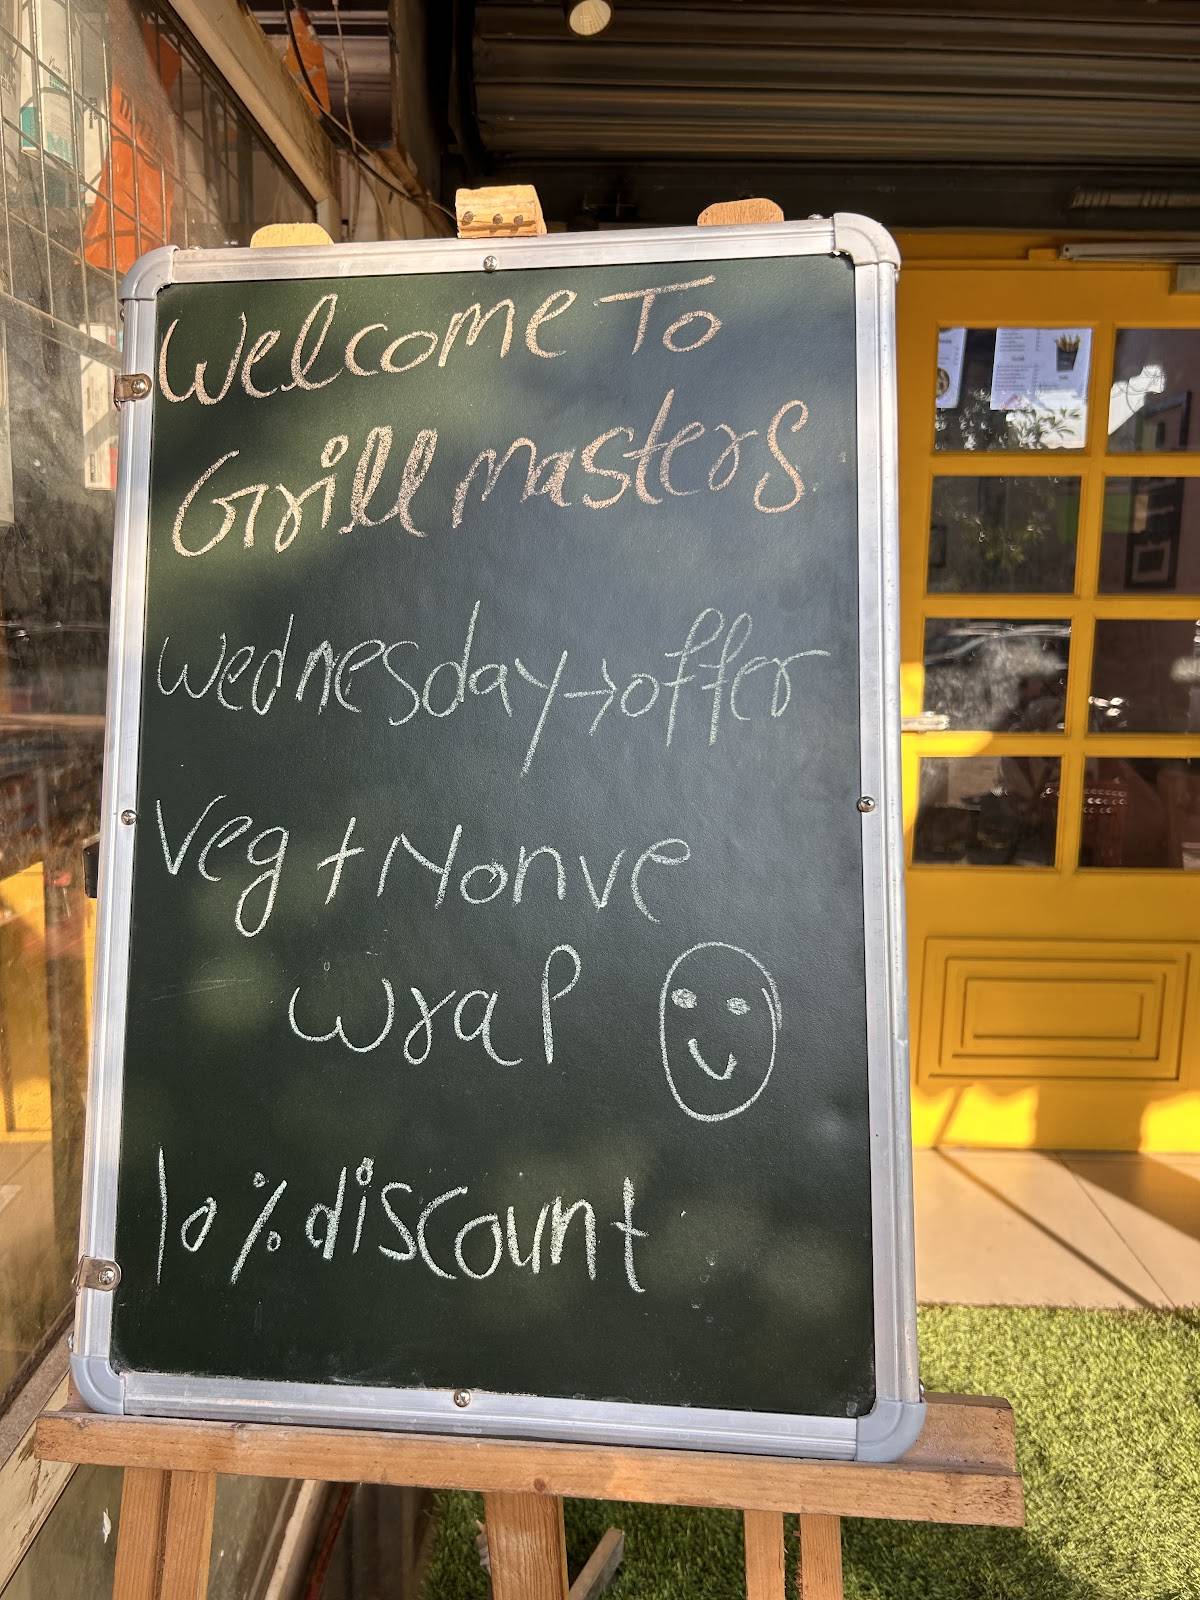 Welcome To
Grill masters
Wednesday→offer
Veg + Nonve
wrap
10% discount